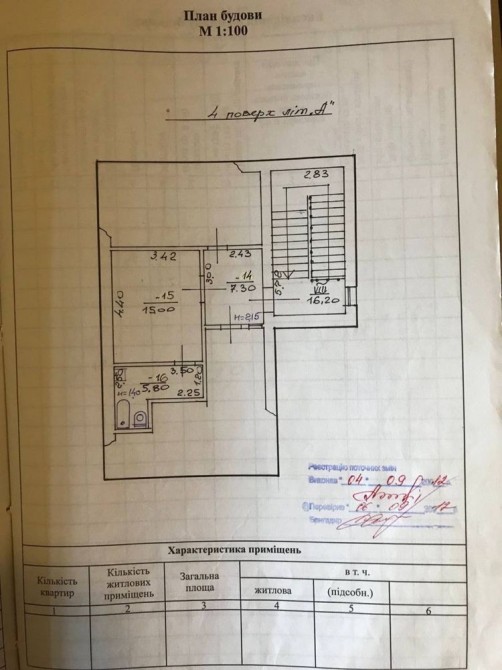 План будови
М 1:100
4 поверх літ. „А"
2.83
3.42
2.43
-14
7.30
-15
15.00
4.40
16,20
VIII
3.50
-16
5.80
2.25
1.20
Реєстрацію поточних змін
Виконав "04" 09 2012
Перевірив "06" 09 17
Бригадир
Характеристика приміщень
Кількість квартир
Кількість житлових приміщень
Загальна площа
в т. ч.
житлова
(підсобн.)
1 2 3 4 5 6